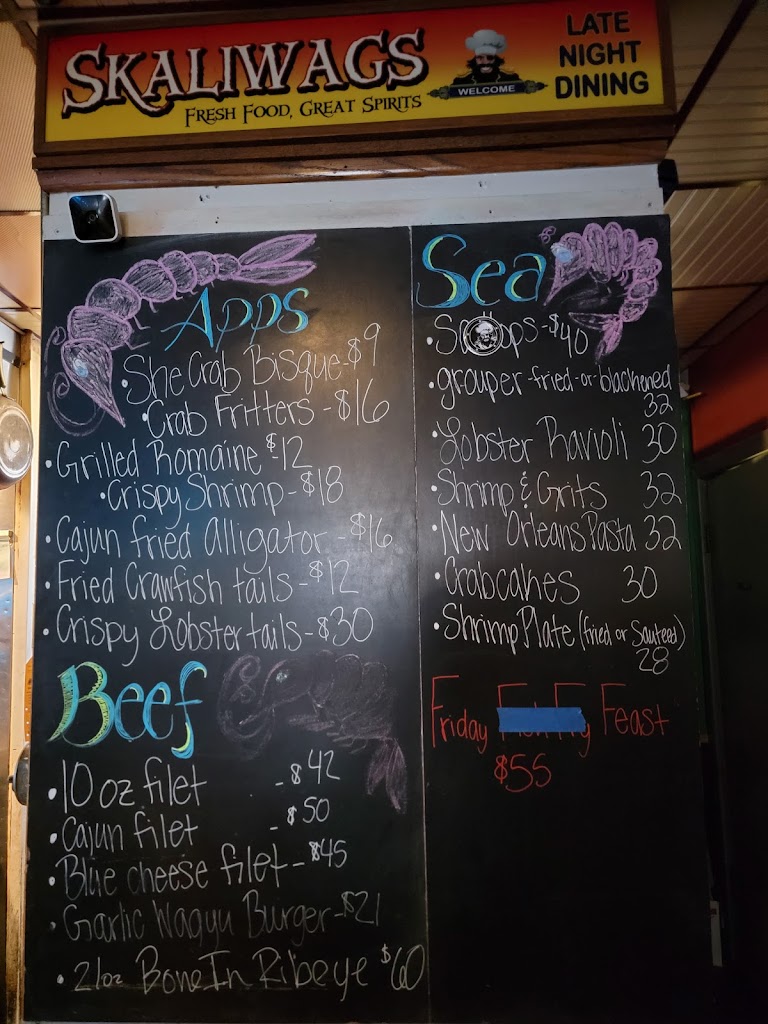 SKALIWAGS
FRESH FOOD, GREAT SPIRITS
WELCOME
LATE
NIGHT
DINING
Apps
• She Crab Bisque - $9
• Crab Fritters - $16
• Grilled Romaine $12
• Crispy Shrimp - $18
• Cajun fried Alligator - $16
• Fried Crawfish tails - $12
• Crispy Lobster tails - $30
Beef
• 10 oz filet - $42
• Cajun filet - $50
• Blue cheese filet - $45
• Garlic Wagyu Burger - $21
• 21oz Bone In Ribeye $60
Sea
• $40
• grouper - fried - or - blackened
32
• Lobster Ravioli 30
• Shrimp & Grits 32
• New Orleans Pasta 32
• Crabcakes 30
• Shrimp Plate (fried or Sauteed)
28
Friday Feast
$55